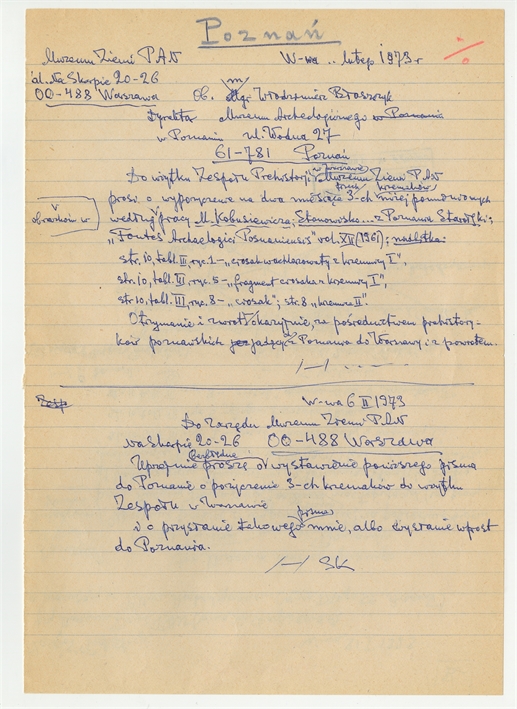 Poznań
Muzeum Ziemi PAN W-wa .. luty 1973 r
al. Na Skarpie 20-26
00-488 Warszawa Ob. Mgr Włodzimierz Błaszczyk
Dyrektor Muzeum Archeologicznego w Poznaniu
w Poznaniu ul. Wodna 27
61-781 Poznań
Do użytku Zespołu Prehistorii w Warszawie Muzeum Ziemi PAN
prosi o wypożyczenie na dwa miesiące 3-ch niżej pomienionych krzemaków
według pracy M. Kobusiewicza; Stanowisko .. z Poznania Starołęki;
"Fontes Archaeologici Posnanienses" vol. XII (1961); nadbitka:
str. 10, tabl. II, ryc. 1 - "ciosak wachlarzowaty z krzemnicy I",
str. 10, tabl. III, ryc. 5 - "fragment ciosaka z krzemnicy I",
str. 10, tabl. III, ryc. 8 - "ciosak"; str. 8 "krzemnica II".
Otrzymanie i zwrot okazyjnie, za pośrednictwem prehistory-
ków poznańskich jadących z Poznania do Warszawy i z powrotem.
W-wa 6 II 1973
Do Zarządu Muzeum Ziemi PAN
Na Skarpie 20-26 00-488 Warszawa
Uprzejmie proszę o wystawienie poniższego pisma
do Poznania o pożyczenie 3-ch krzemaków do użytku
Zespołu w Warszawie
i o przysłanie takowego pisma mnie, albo wysłanie wprost
do Poznania.
SK